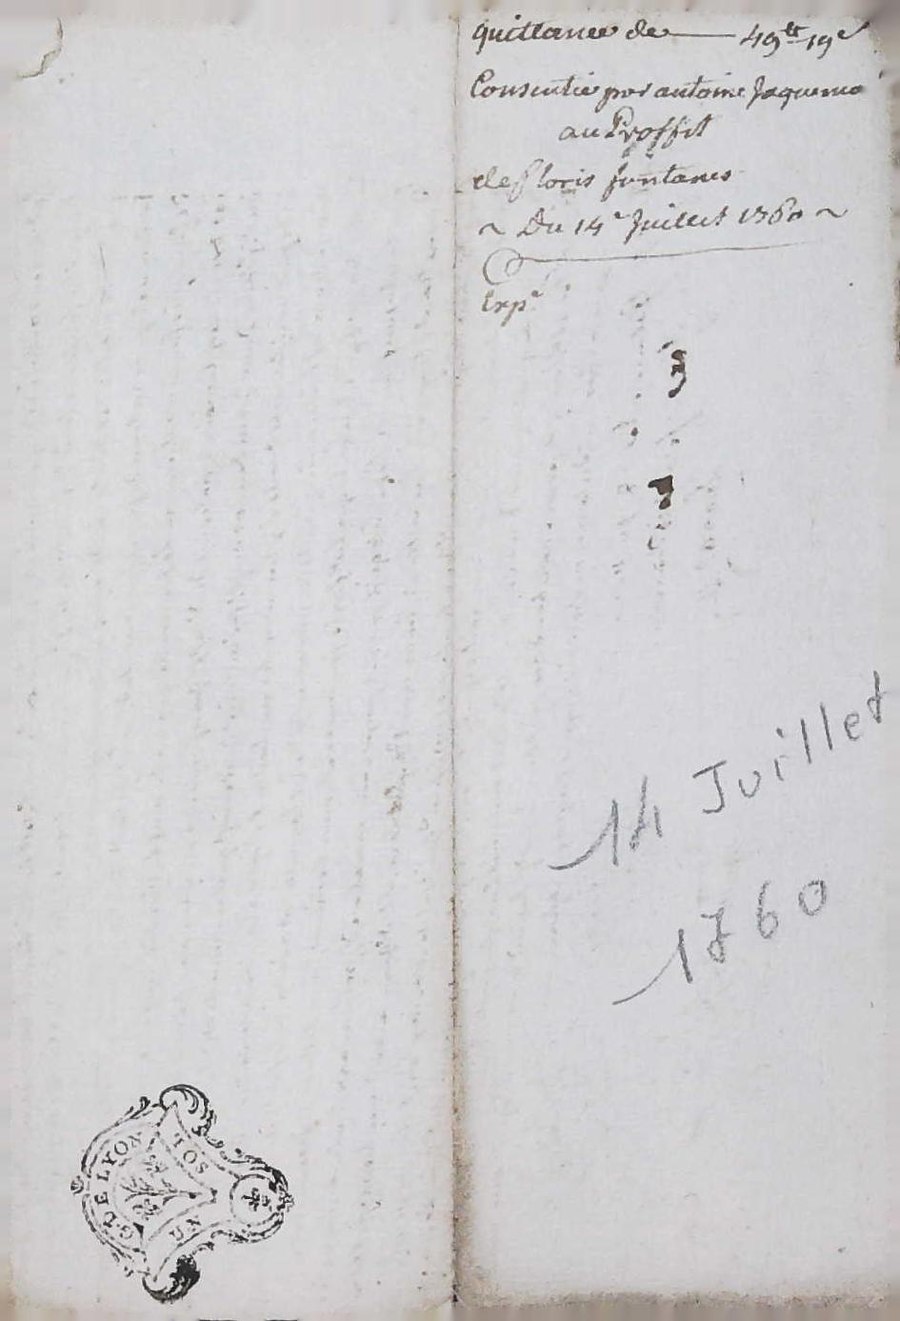 quittance de — 49ᵗᵗ 19ˢ
Consentie par antoine Jaquema
au Proffit
de floris funtanes
~ Du 14ᵉ Juillet 1760 ~
Expᵉ
14 Juillet
1760
G. DE LYON
UN SOL